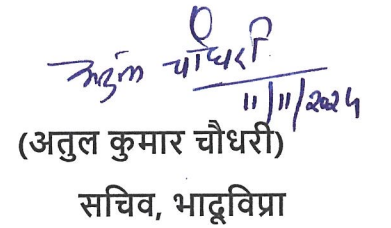 अतुल चौधरी
11/11/2024
(अतुल कुमार चौधरी)
सचिव, भादूविप्रा